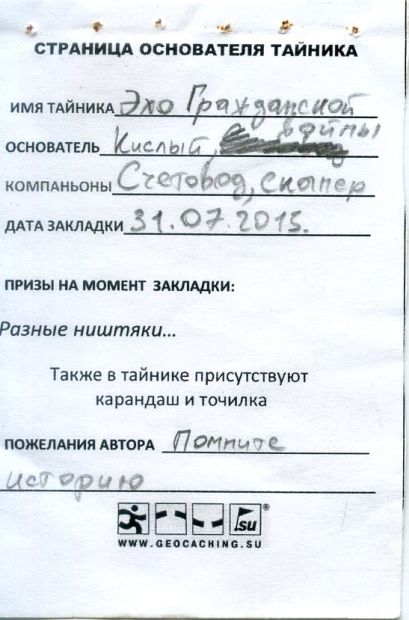 СТРАНИЦА ОСНОВАТЕЛЯ ТАЙНИКА
ИМЯ ТАЙНИКА Эхо Гражданской
войны
ОСНОВАТЕЛЬ Кислый,
КОМПАНЬОНЫ Счетовод, Скалпер
ДАТА ЗАКЛАДКИ 31.07.2015.
ПРИЗЫ НА МОМЕНТ ЗАКЛАДКИ:
Разные ништяки...
Также в тайнике присутствуют
карандаш и точилка
ПОЖЕЛАНИЯ АВТОРА Помните
историю
.su ®
WWW.GEOCACHING.SU